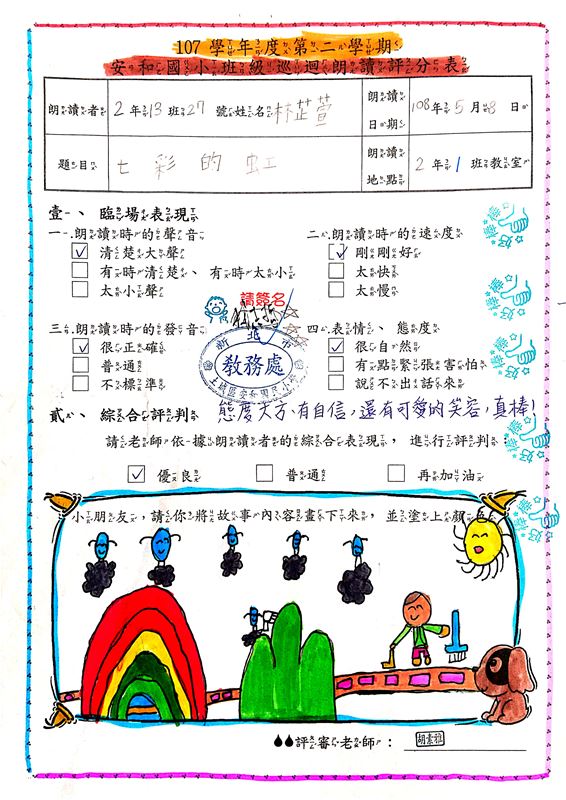 107 學年度第二學期
安和國小班級巡迴朗讀評分表
朗讀者 2年13班27 號姓名林芷萱 朗讀日期 108年5月8日
題目 七彩的虹 朗讀地點 2年1班教室
壹、臨場表現
一.朗讀時的聲音 二.朗讀時的速度
清楚大聲 剛剛好
有時清楚、有時太小 太快
太小聲 太慢
請簽名
三.朗讀時的發音 四.表情、態度
很正確 很自然
普通 有點緊張害怕
不標準 說不出話來
新北市
教務處
土城區安和國民小學
貳、綜合評判 態度大方、有自信,還有可愛的笑容,真棒!
請老師依據朗讀者的綜合表現,進行評判
優良 普通 再加油
小朋友,請你將故事內容畫下來,並塗上顏色
評審老師: